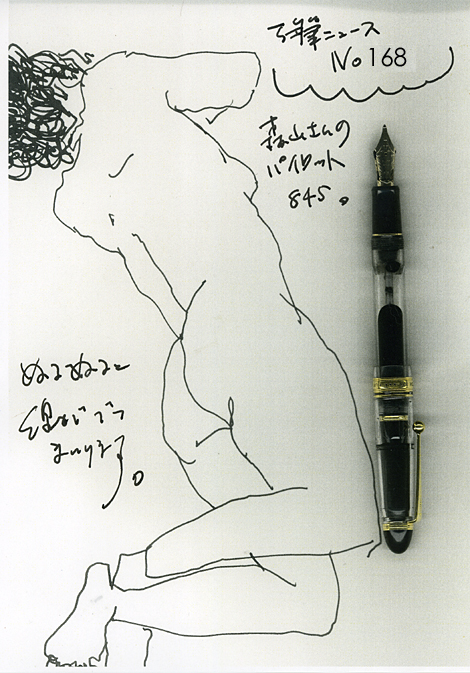 弾筆ニュース
No 168
森山さんの
パイロット
845。
ぬるぬると
線がでて
まいります。